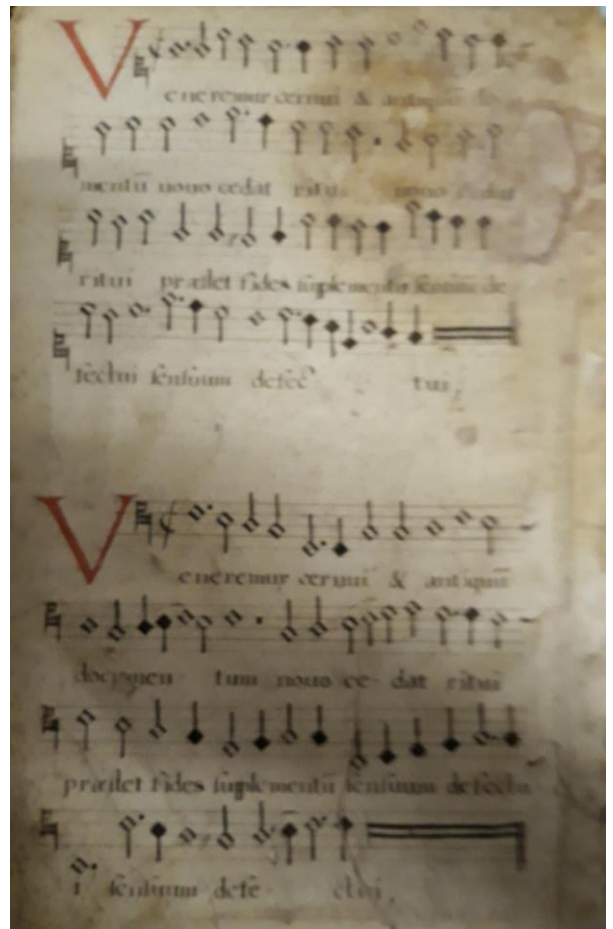 Veneremur cernui & antiquũ do
mentũ nouo cedat ritui nouo cedat
ritui præstet fides supplementũ sensuũ de
fectui sensuum defec tui,
Veneremur cernui & antiquũ
documen tum nouo ce dat ritui
præstet fides supplementũ sensuum defectu
i sensuum defe ctui,